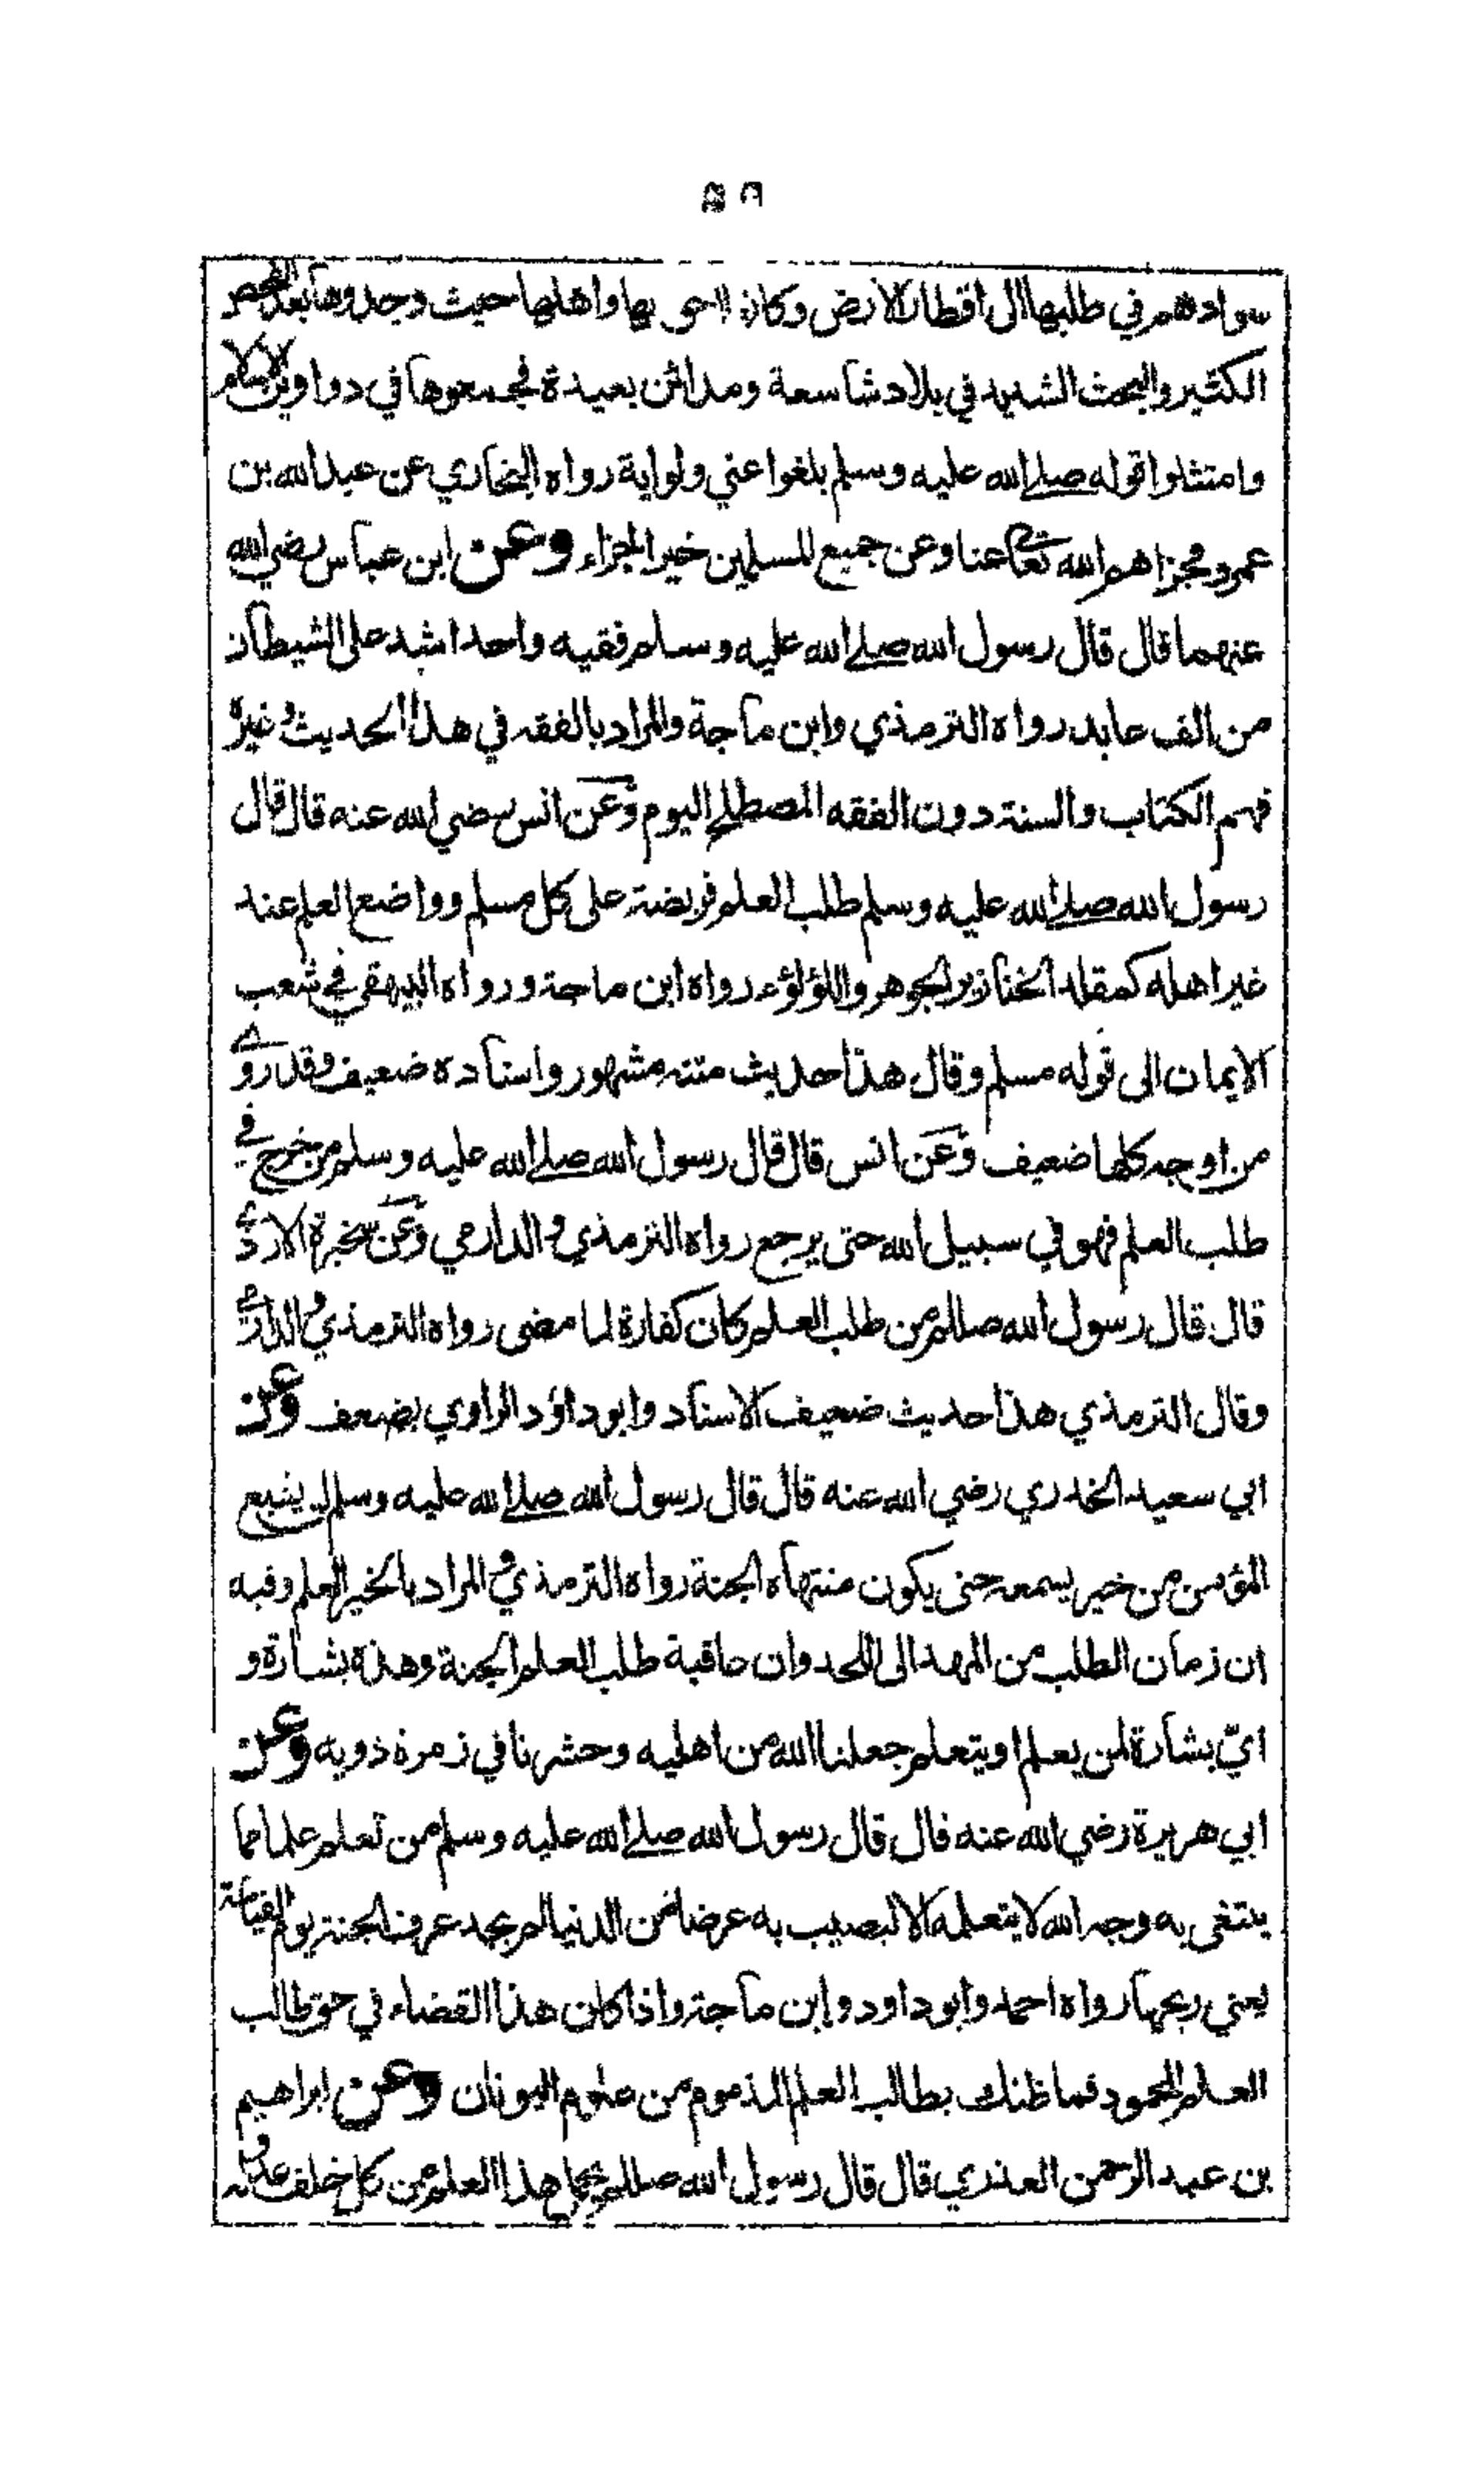 سوادهم في طلبها الى اقطار الارض وكانوا احق بها واهلها حيث وجدوها بعد الفحص
الكثير والبحث الشديد في بلاد شاسعة ومدائن بعيدة فجمعوها في دواوين الاسلام
وامتثلوا قوله صلى الله عليه وسلم بلغوا عني ولو اية رواه البخاري عن عبد الله بن
عمرو فجزاهم الله تعالى عنا وعن جميع المسلمين خير الجزاء وعن ابن عباس رضي الله
عنهما قال قال رسول الله صلى الله عليه وسلم فقيه واحد اشد على الشيطان
من الف عابد رواه الترمذي وابن ماجة والمراد بالفقه في هذا الحديث وغيره
فهم الكتاب والسنة دون الفقه المصطلح اليوم وعن انس رضي الله عنه قال قال
رسول الله صلى الله عليه وسلم طلب العلم فريضة على كل مسلم وواضع العلم عند
غير اهله كمقلد الخنازير الجوهر واللؤلؤء رواه ابن ماجة ورواه البيهقي في شعب
الايمان الى قوله مسلم وقال هذا حديث متنه مشهور واسناده ضعيف وقد روي
من اوجه كلها ضعيف وعن انس قال قال رسول الله صلى الله عليه وسلم من خرج في
طلب العلم فهو في سبيل الله حتى يرجع رواه الترمذي والدارمي وعن سخبرة الازدي
قال قال رسول الله صللم من طلب العلم كان كفارة لما مضى رواه الترمذي والدارمي
وقال الترمذي هذا حديث ضعيف الاسناد وابو داؤد الراوي يضعف وعن
ابي سعيد الخدري رضي الله عنه قال قال رسول الله صلى الله عليه وسلم لن يشبع
المؤمن من خير يسمعه حتى يكون منتهاه الجنة رواه الترمذي والمراد بالخير العلم وفيه
ان زمان الطلب من المهد الى اللحد وان عاقبة طلب العلم الجنة وهذه بشارة و
ايّ بشارة لمن يعلم او يتعلم جعلنا الله من اهليه وحشرنا في زمرة ذويه وعن
ابي هريرة رضي الله عنه قال قال رسول الله صلى الله عليه وسلم من تعلم علما مما
يبتغى به وجه الله لا يتعلمه الا ليصيب به عرضا من الدنيا لم يجد عرف الجنة يوم القيامة
يعني ريحها رواه احمد وابو داود وابن ماجة واذا كان هذا القضاء في حق طالب
العلم المحمود فما ظنك بطالب العلم المذموم من علوم اليونان وعن ابراهيم
بن عبد الرحمن العذري قال قال رسول الله صللم يحمل هذا العلم من كل خلف عدوله